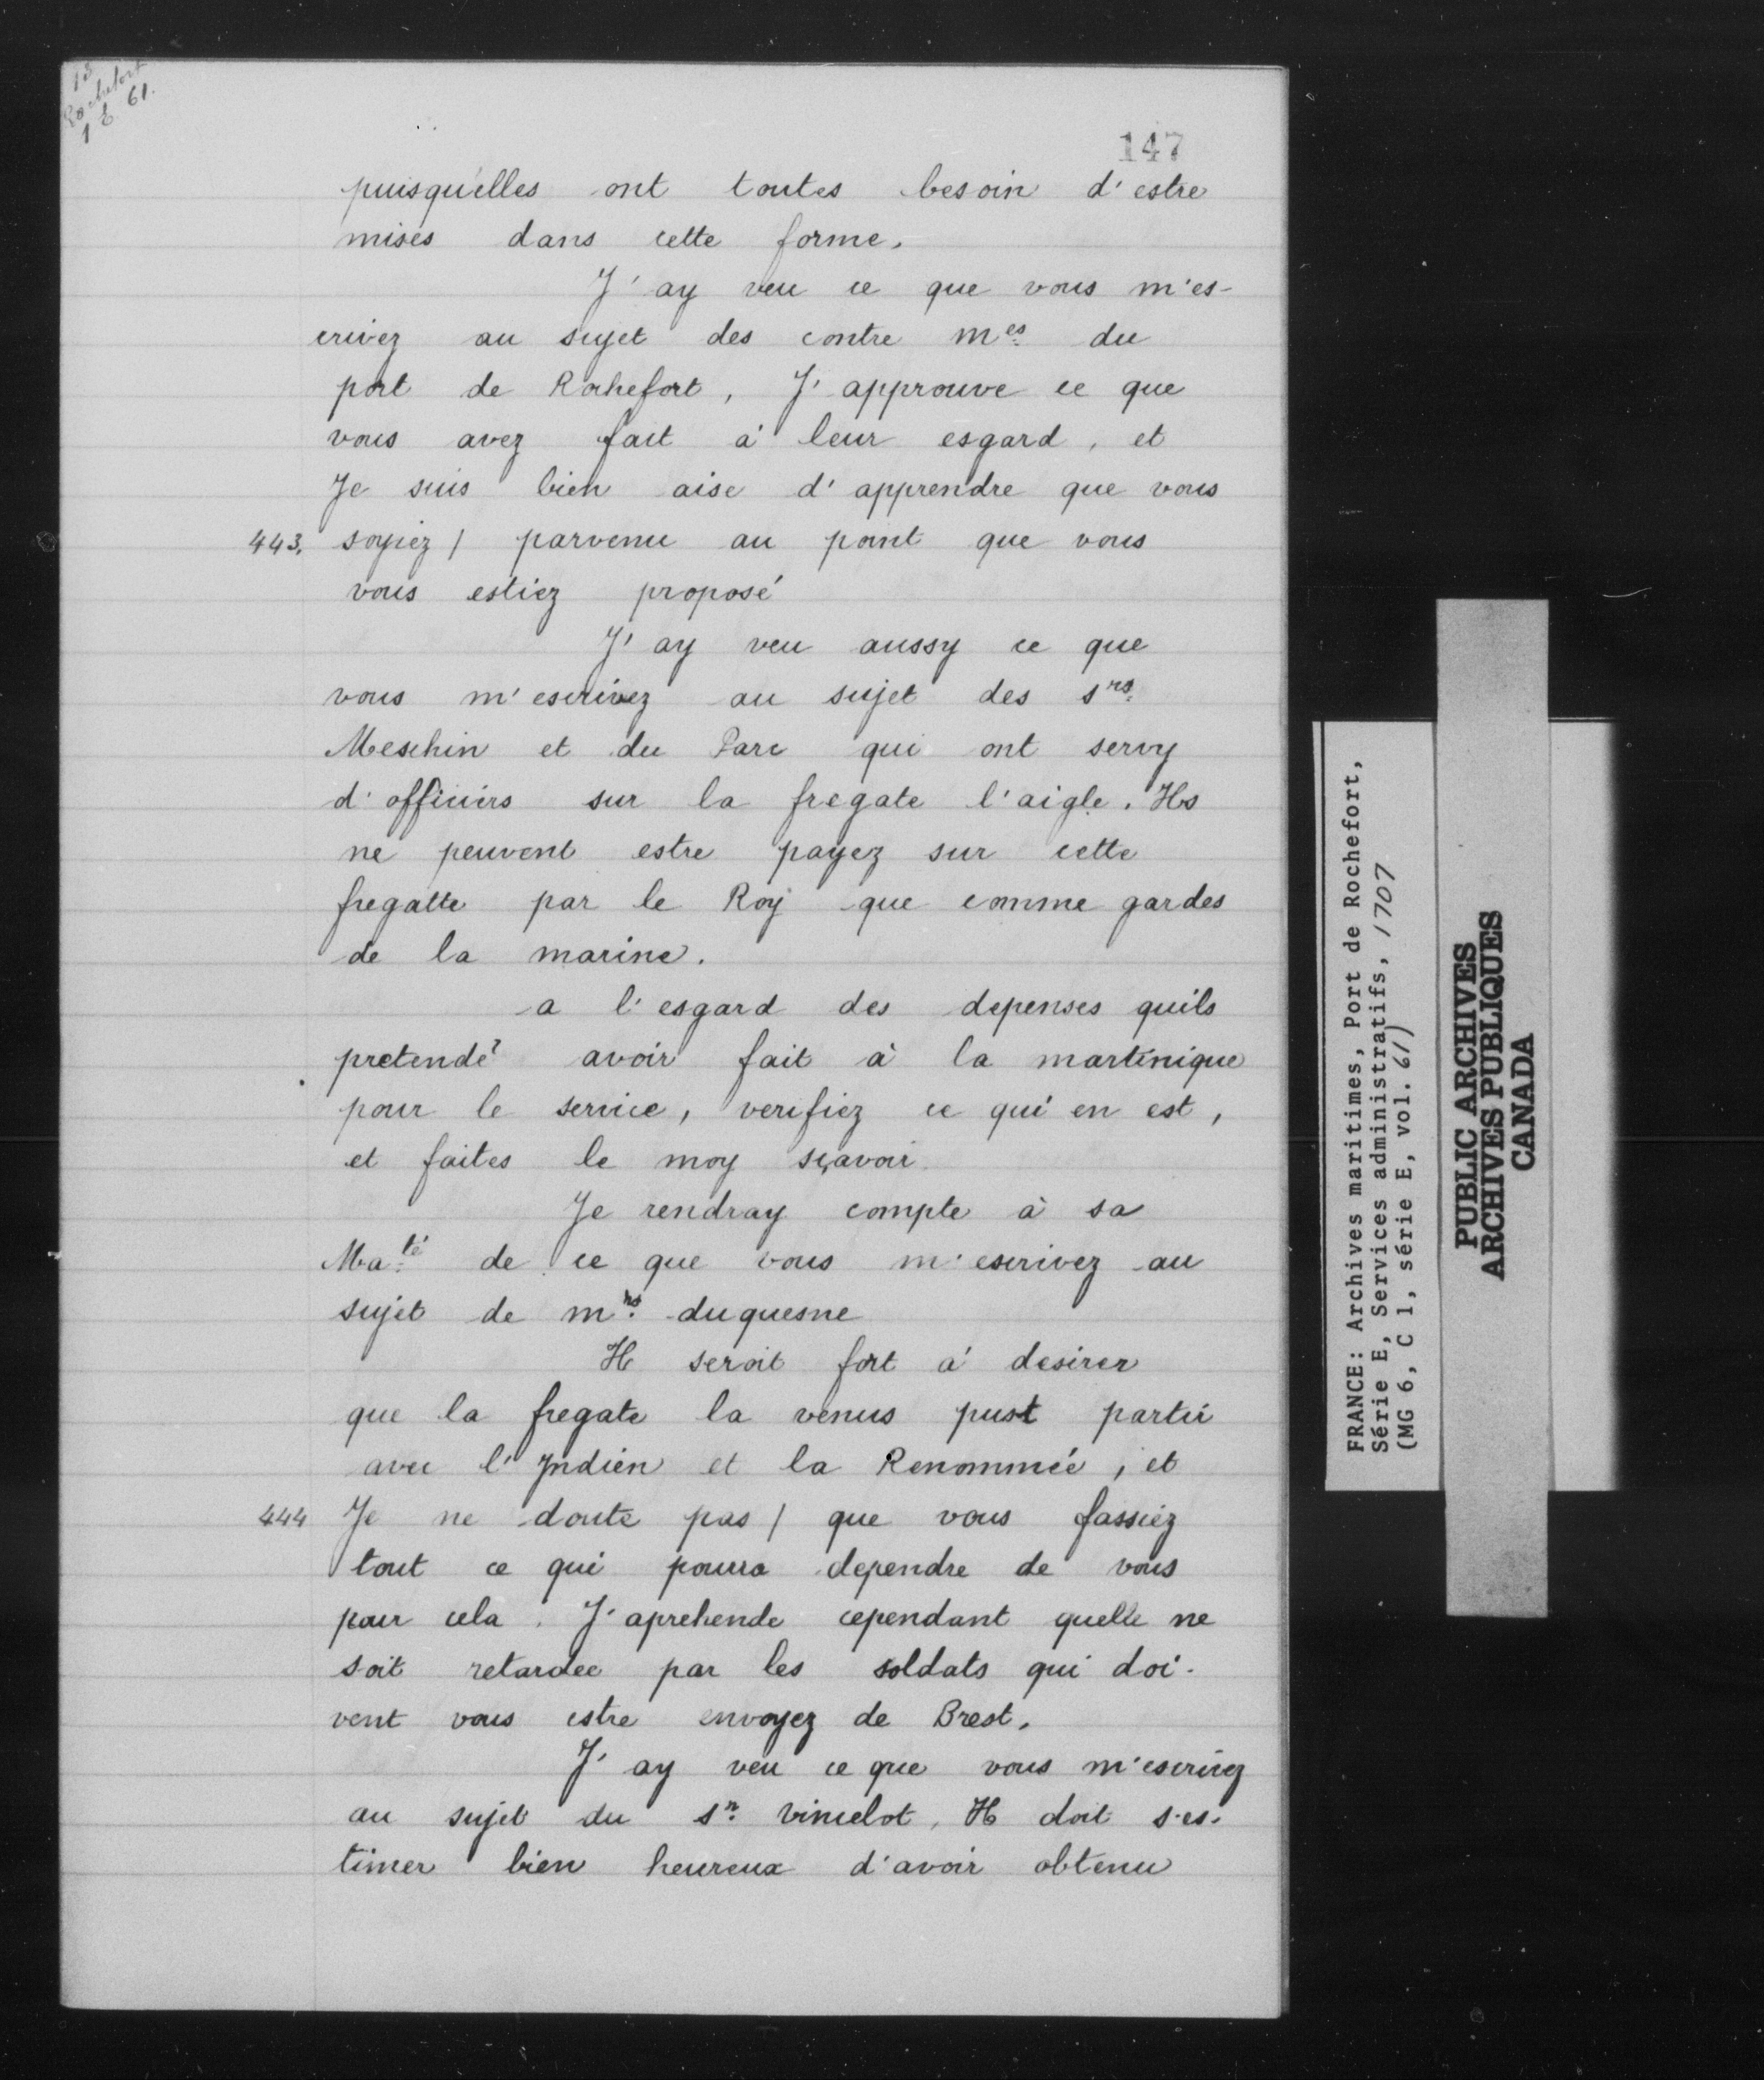 Rochefort
1 E 61.
147
puisqu'elles ont toutes besoin d'estre
mises dans cette forme.
J'ay veu ce que vous m'es-
crivez au sujet des contre mes. du
port de Rochefort, J'approuve ce que
vous avez fait à leur esgard, et
Je suis bien aise d'apprendre que vous
443. soyiez / parvenu au point que vous
vous estiez proposé
J'ay veu aussy ce que
vous m'escrivez au sujet des srs.
Meschin et du Parc qui ont servy
d'officiers sur la fregate l'aigle. Ils
ne peuvent estre payez sur cette
fregatte par le Roy que comme gardes
de la marine.
a l'esgard des depenses quils
pretendt avoir fait à la martinique
pour le service, verifiez ce qui en est,
et faites le moy sçavoir
Je rendray compte à sa
Ma.té de ce que vous m'escrivez au
sujet de mrs. duquesne
Il seroit fort à desirer
que la fregate la venus pust partir
avec l'Indien et la Renommée, et
444 Je ne doute pas / que vous fassiez
tout ce qui pourra dependre de vous
pour cela. J'aprehende cependant quelle ne
soit retardee par les soldats qui doi-
vent vous estre envoyez de Brest.
J'ay veu ce que vous m'escrivez
au sujet du sr. vincelot, Il doit s'es-
timer bien heureux d'avoir obtenu
FRANCE: Archives maritimes, Port de Rochefort,
Série E, Services administratifs, 1707
(MG 6, C 1, série E, vol. 61)
PUBLIC ARCHIVES
ARCHIVES PUBLIQUES
CANADA